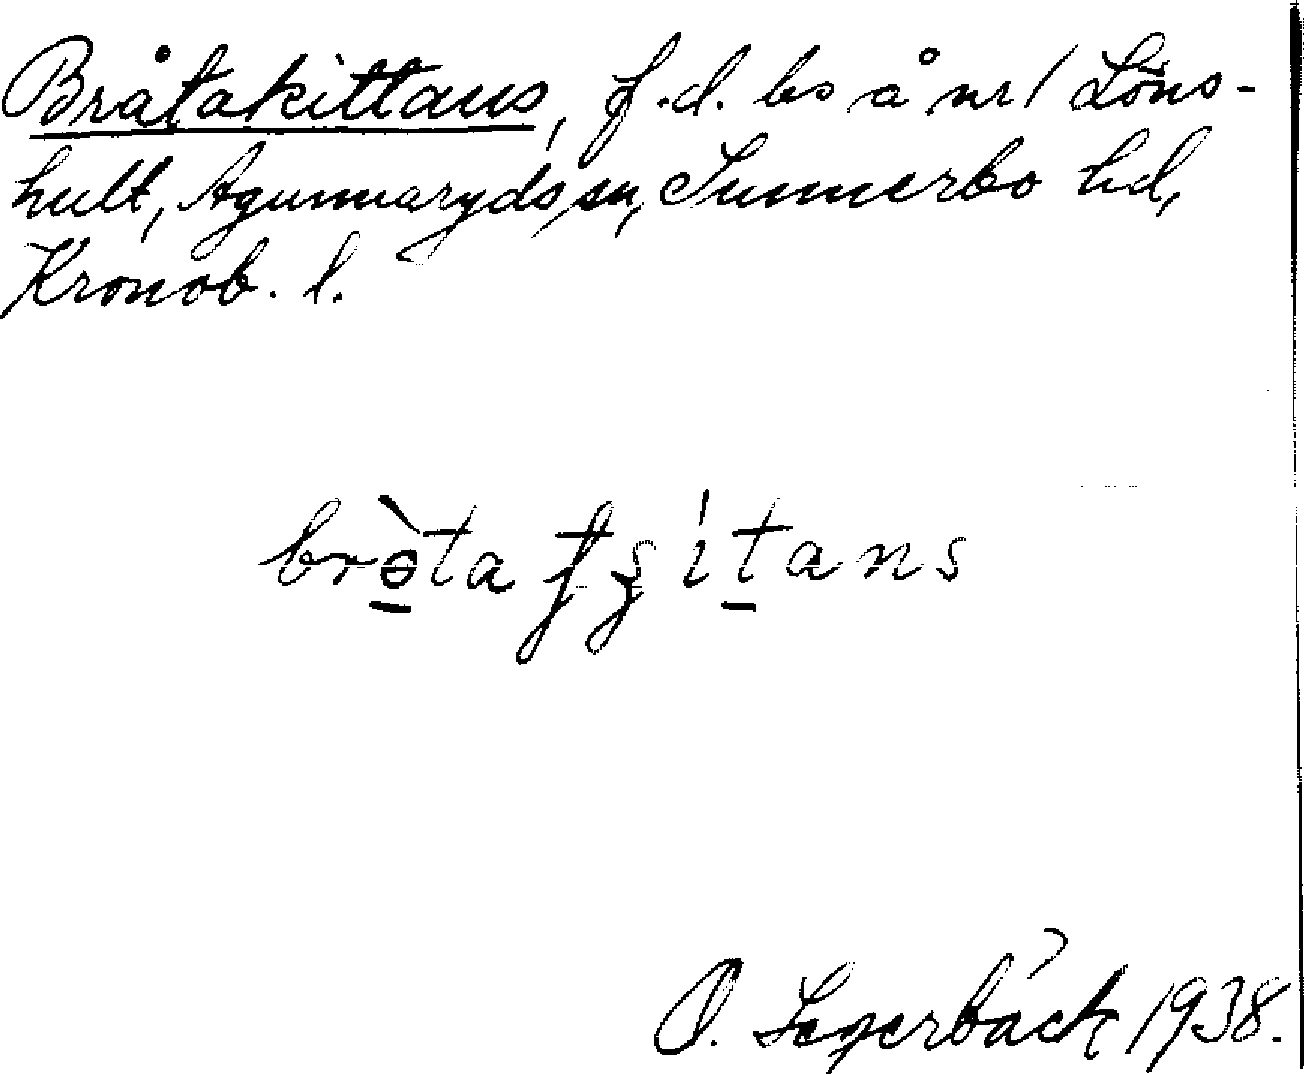 Bråtakittans, f.d. bs å nr 1 Löns-
hult, Agunnaryds sn, Sunnerbo hd,
Kronob. l.
brə̀ta ʄʓítans
O. Segerbäck 1938.